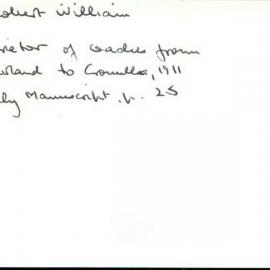 obert William
rietor of coaches from
rland to Cronulla, 1911
ly Manuscript. p. 25